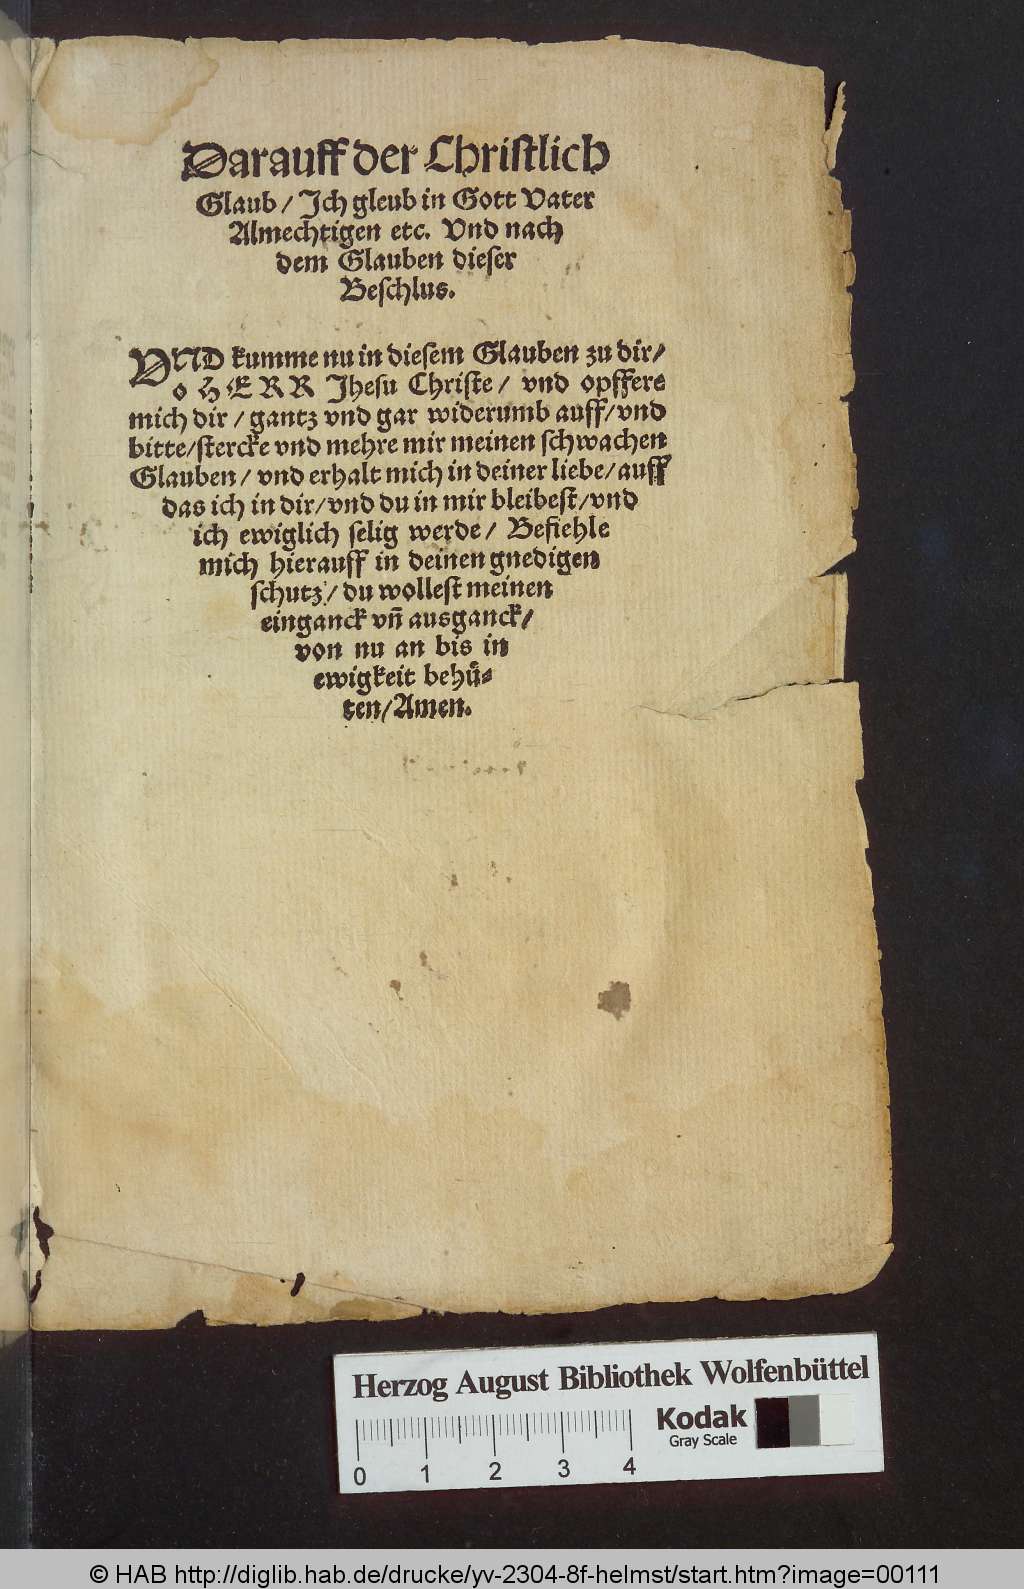 Darauff der Christlich
Glaub / Jch gleub in Gott Vater
Almechtigen etc. Vnd nach
dem Glauben dieser
Beschlus.
VND kumme nu in diesem Glauben zu dir /
o HERR Jhesu Christe / vnd opffere
mich dir / gantz vnd gar widerumb auff / vnd
bitte / stercke vnd mehre mir meinen schwachen
Glauben / vnd erhalt mich in deiner liebe / auff
das ich in dir / vnd du in mir bleibest / vnd
ich ewiglich selig werde / Befiehle
mich hierauff in deinen gnedigen
schutz / du wollest meinen
einganck vn̄ ausganck /
von nu an bis in
ewigkeit behuͤ-
ten / Amen.
Herzog August Bibliothek Wolfenbüttel
Kodak
Gray Scale
0 1 2 3 4
© HAB http://diglib.hab.de/drucke/yv-2304-8f-helmst/start.htm?image=00111